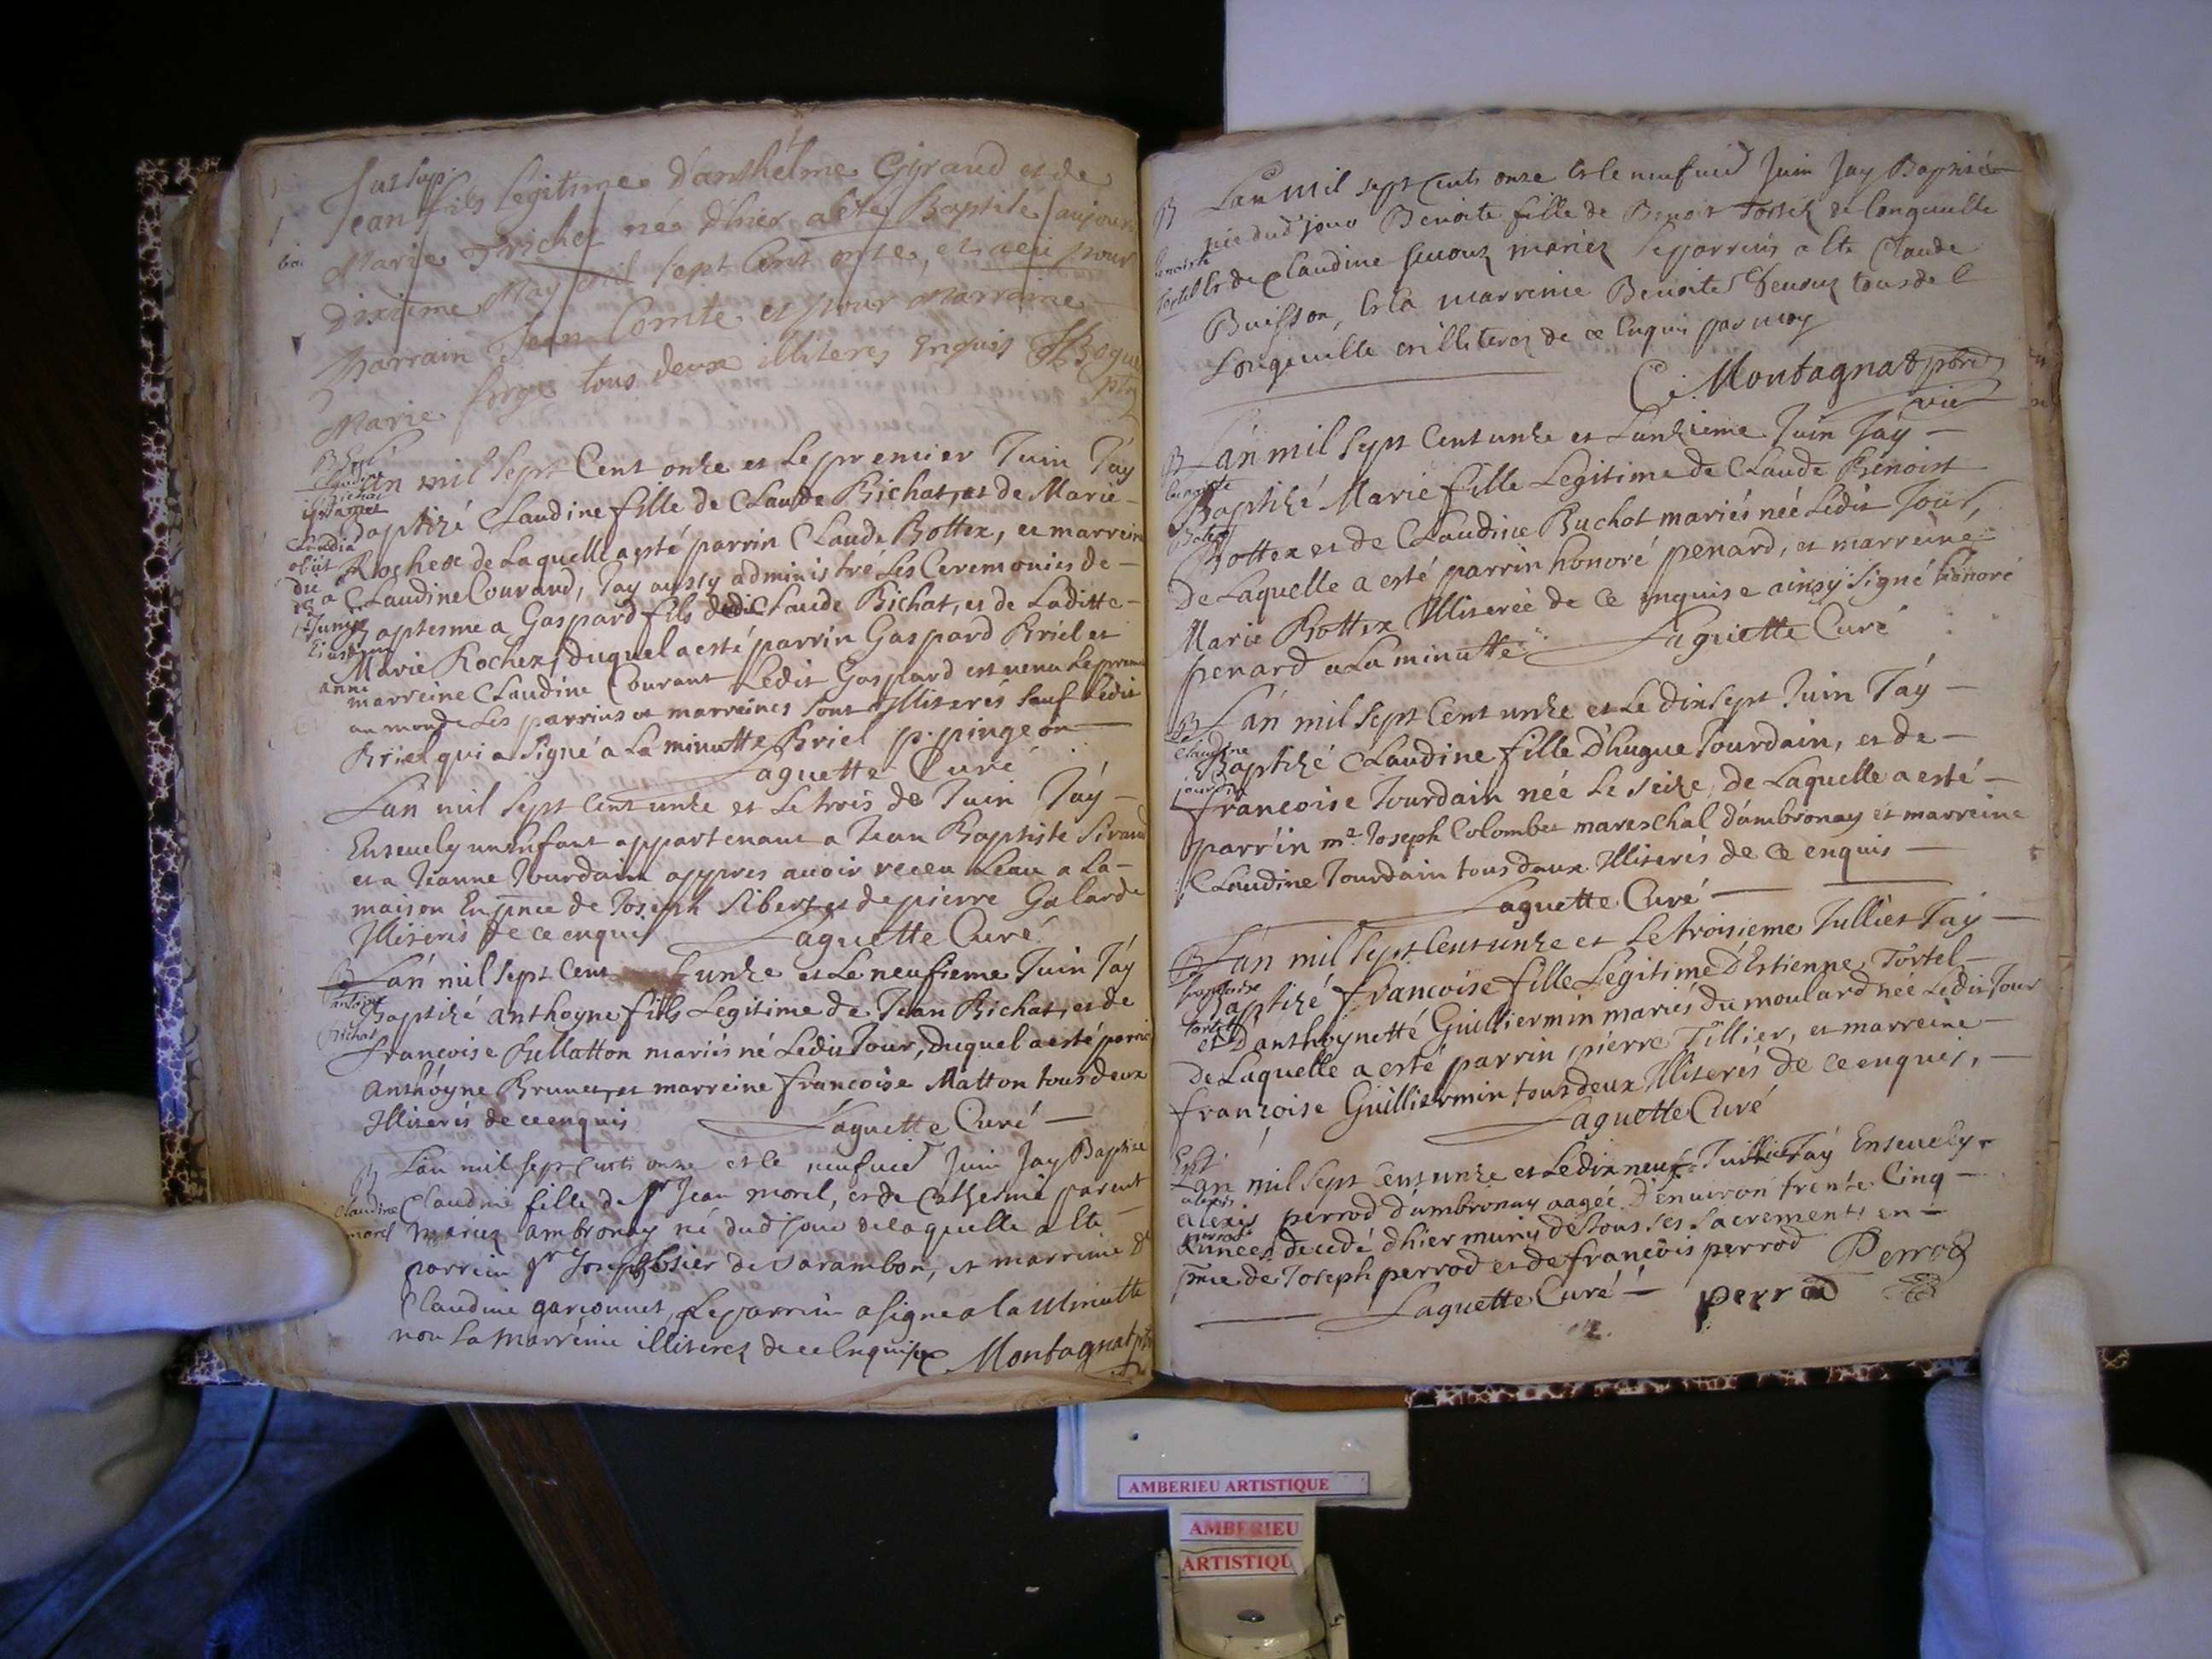 Jean fils legitime d'anthelme Giraud et de
Marie née d'hier a ete Baptise aujourd
Dixieme May mil sept Cent onze, et a eu pour
Parrain Jean Comte et pour Marraine
Marie forge tous deux illiteres Enquis
L'an mil Sept Cent onze et Le premier Juin Jay
Baptizé Claudine fille de Claude Bichat, et de Marie
Rochex de Laquelle a esté parrin Claude Bottex, et marreine
Claudine Courand, Jay aussy administré Les Ceremonies de
Baptesme a Gaspard fils dudit Claude Bichat, et de Laditte
Marie Rochex, duquel a esté parrin Gaspard Briel et
marreine Claudine Courant Ledit Gaspard est venu Le premier
au monde Les parrins et marreines Sont Illiterés Sauf Ledit
Briel qui a Signé a La minutte Briel p. pingeon
Laguette Curé
L'an mil Sept Cent unze et Le trois de Juin Jay
Enseuely un Enfant appartenant a Jean Baptiste Sirand
et a Jeanne Jourdain appres auoir receu Leau a La
maison En pnce de Joseph Sibert et de pierre Galarde
Illiterés de ce enquis Laguette Curé
B
L'an mil Sept Cent unze et Le neufieme Juin Jay
antoine
Baptizé anthoyne fils Legitime de Jean Bichat, et de
Bichat
francoise Bellatton mariés né Ledit Jour, Duquel a esté parrin
anthoyne Brunet, et marreine francoise Matton tous deux
Illiterés de ce enquis Laguette Curé
B
L'an mil sept Cents onze et le neufuie Juin Jay Baptisé
Claudine
Claudine fille de Sr Jean morel, et de Catherine parent
morel
Mariez ambronay né dud jour de laquelle a ete
parrein Sr Joseph de Varambon, et marreine
Claudine garconnet, Le parrein a signe a la Minutte
non La Marreine illiterez de ce Enquise Montagnat
B
L'an Mil sept Cents onze et le neufuie Juin Jay Baptisé
née dud jour Benoite fille de Benoit Tortel de Longeuille
tortel
et de Claudine feuouz mariez le parrein a Ete Claude
Buisson, et la marreine Benoite feuouz tous de
Longeuille illiterez de ce Enquis par moy
C. Montagnat pbre
vic
B
L'an mil Sept Cent unze et L'unzieme Juin Jay
Baptizé Marie fille Legitime de Claude Benoist
Bottex et de Claudine Buchot mariés née Ledit Jour,
De Laquelle a esté parrin honoré penard, et marreine
Marie Bottex Illiterée de Ce enquise ainsy Signé honoré
penard a La minutte Laguette Curé
B
L'an mil Sept Cent unze et Le Dix Sept Juin Jay
Claudine
Baptizé Claudine fille D'hugue Jourdain, et de
jourdain
francoise Jourdain née Le seize, de Laquelle a esté
parrin me Joseph Colombet mareschal d'ambronay et marreine
Claudine Jourdain tous deux Illiterés de Ce enquis
Laguette Curé
B
L'an mil Sept Cent unze et Le troisieme Julliet Jay
francoise
Baptizé francoise fille Legitime d'Estienne Tortel
tortel
et D'anthoynetté Guilliermin mariés du moulard née Ledit Jour
De Laquelle a esté parrin pierre Tillier, et marreine
françoise Guilliermin tous deux Illiterés de ce enquis,
Laguette Curé
L'an mil Sept Cent unze et Le dix neuf Julliet Jay Enseuely
alexis
alexis perrod d'ambronay aagée D'enuiron trente Cinq
perrod
années decedé d'hier muny de tous ses Sacrements en
pnce de Joseph perrod et de françois perrod Perrod
Laguette Curé perrod
AMBERIEU ARTISTIQUE
AMBERIEU
ARTISTIQU